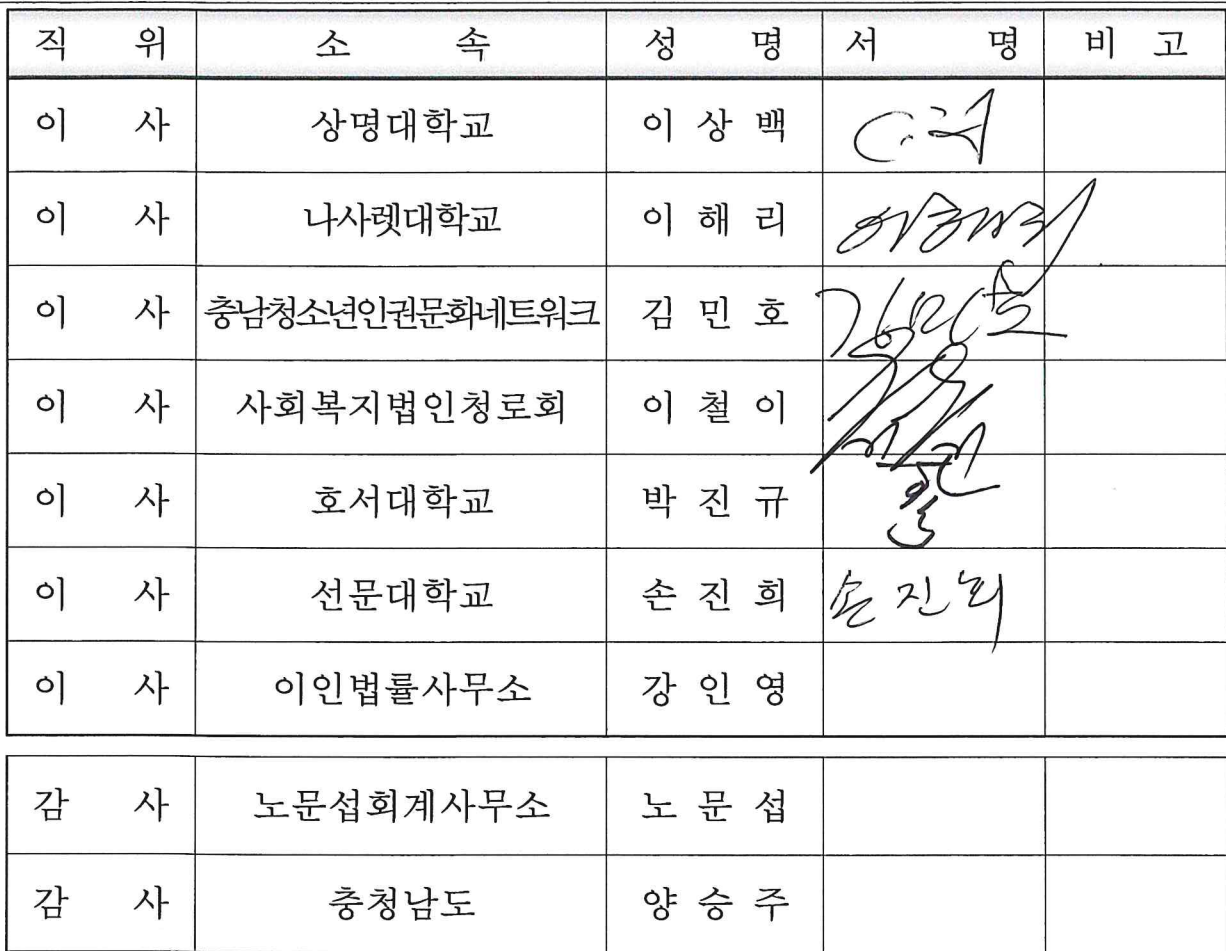 직 위 소 속 성 명 서 명 비 고
이 사 상명대학교 이 상 백
이 사 나사렛대학교 이 해 리 이해리
이 사 충남청소년인권문화네트워크 김 민 호 김민호
이 사 사회복지법인청로회 이 철 이
이 사 호서대학교 박 진 규
이 사 선문대학교 손 진 희 손진희
이 사 이인법률사무소 강 인 영
감 사 노문섭회계사무소 노 문 섭
감 사 충청남도 양 승 주